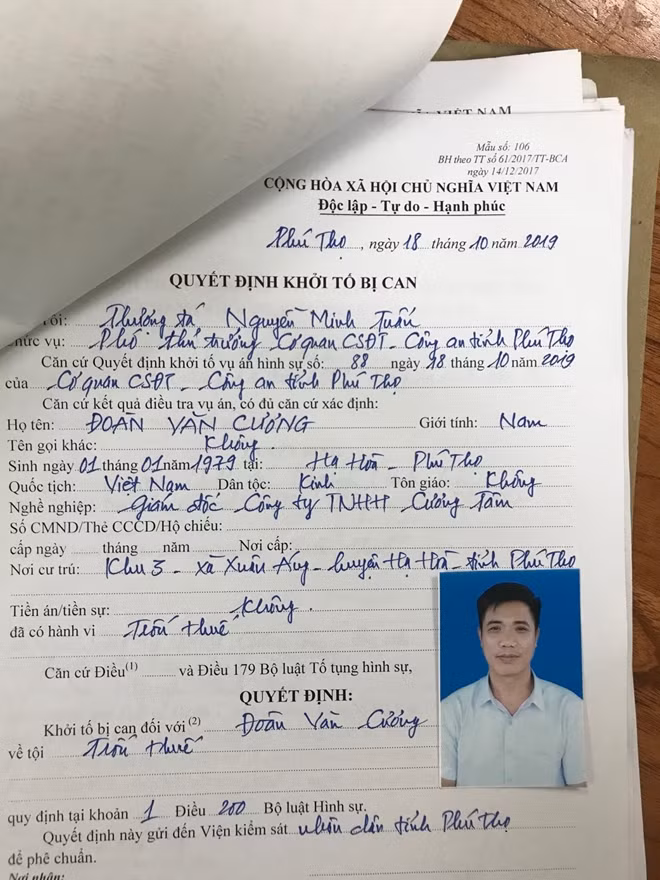 VIỆT NAM
Mẫu số: 106
BH theo TT số 61/2017/TT-BCA
ngày 14/12/2017
CỘNG HÒA XÃ HỘI CHỦ NGHĨA VIỆT NAM
Độc lập - Tự do - Hạnh phúc
Phú Thọ, ngày 18 tháng 10 năm 2019
QUYẾT ĐỊNH KHỞI TỐ BỊ CAN
Tôi: Thượng tá Nguyễn Minh Tuấn
chức vụ: Phó thủ trưởng Cơ quan CSĐT - Công an tỉnh Phú Thọ
Căn cứ Quyết định khởi tố vụ án hình sự số: 88 ngày 18 tháng 10 năm 2019
của Cơ quan CSĐT - Công an tỉnh Phú Thọ
Căn cứ kết quả điều tra vụ án, có đủ căn cứ xác định:
Họ tên: ĐOÀN VĂN CƯƠNG Giới tính: Nam
Tên gọi khác: Không.
Sinh ngày 01 tháng 01 năm 1979 tại: Hạ Hòa - Phú Thọ
Quốc tịch: Việt Nam Dân tộc: Kinh Tôn giáo: Không
Nghề nghiệp: Giám đốc Công ty TNHH Cương Tâm
Số CMND/Thẻ CCCD/Hộ chiếu:
cấp ngày tháng năm Nơi cấp:
Nơi cư trú: Khu 3 - xã Xuân Áng - huyện Hạ Hoà - tỉnh Phú Thọ
Tiền án/tiền sự: Không.
đã có hành vi Trốn thuế
Căn cứ Điều(1) và Điều 179 Bộ luật Tố tụng hình sự,
QUYẾT ĐỊNH:
Khởi tố bị can đối với (2) Đoàn Văn Cương
về tội Trốn thuế
quy định tại khoản 1 Điều 200 Bộ luật Hình sự.
Quyết định này gửi đến Viện kiểm sát nhân dân tỉnh Phú Thọ
để phê chuẩn.
Nơi nhận: